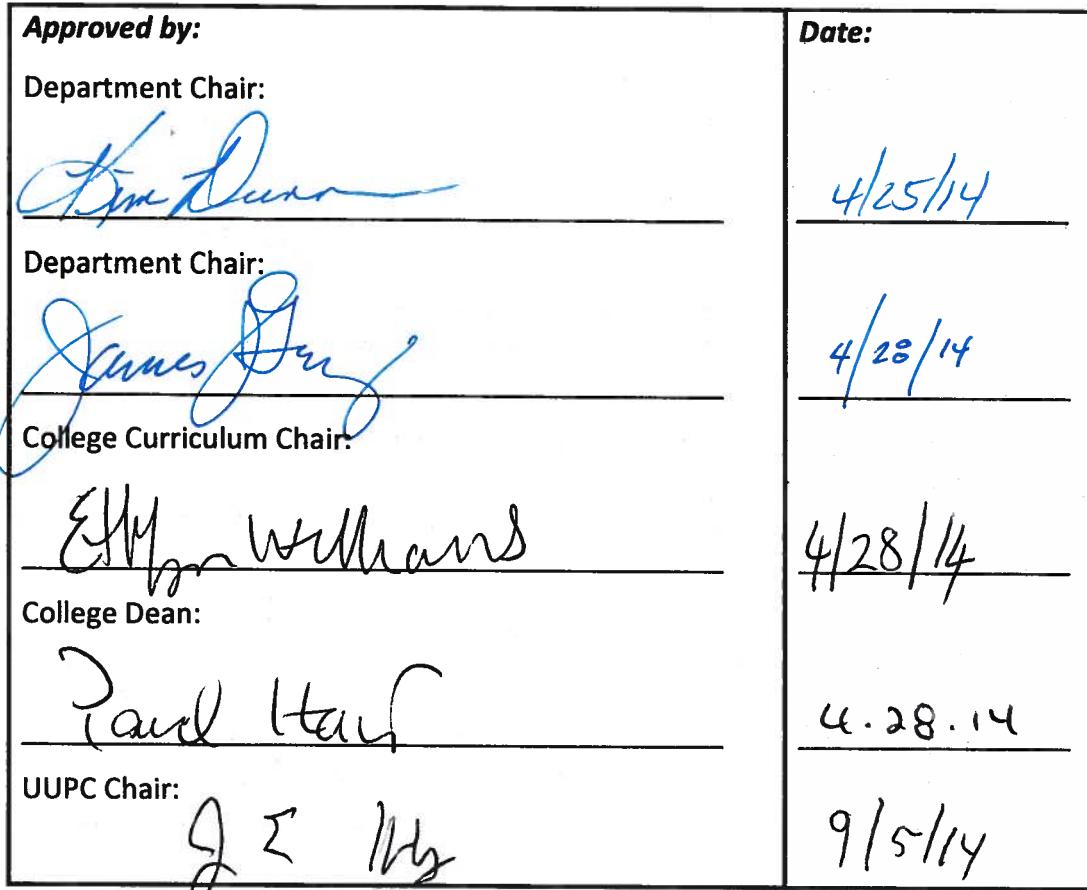 Approved by: Date:
Department Chair:
Kim Dunn 4/25/14
Department Chair:
James Gray 4/28/14
College Curriculum Chair:
Ethlyn Williams 4/28/14
College Dean:
4.28.14
UUPC Chair:
J E 9/5/14